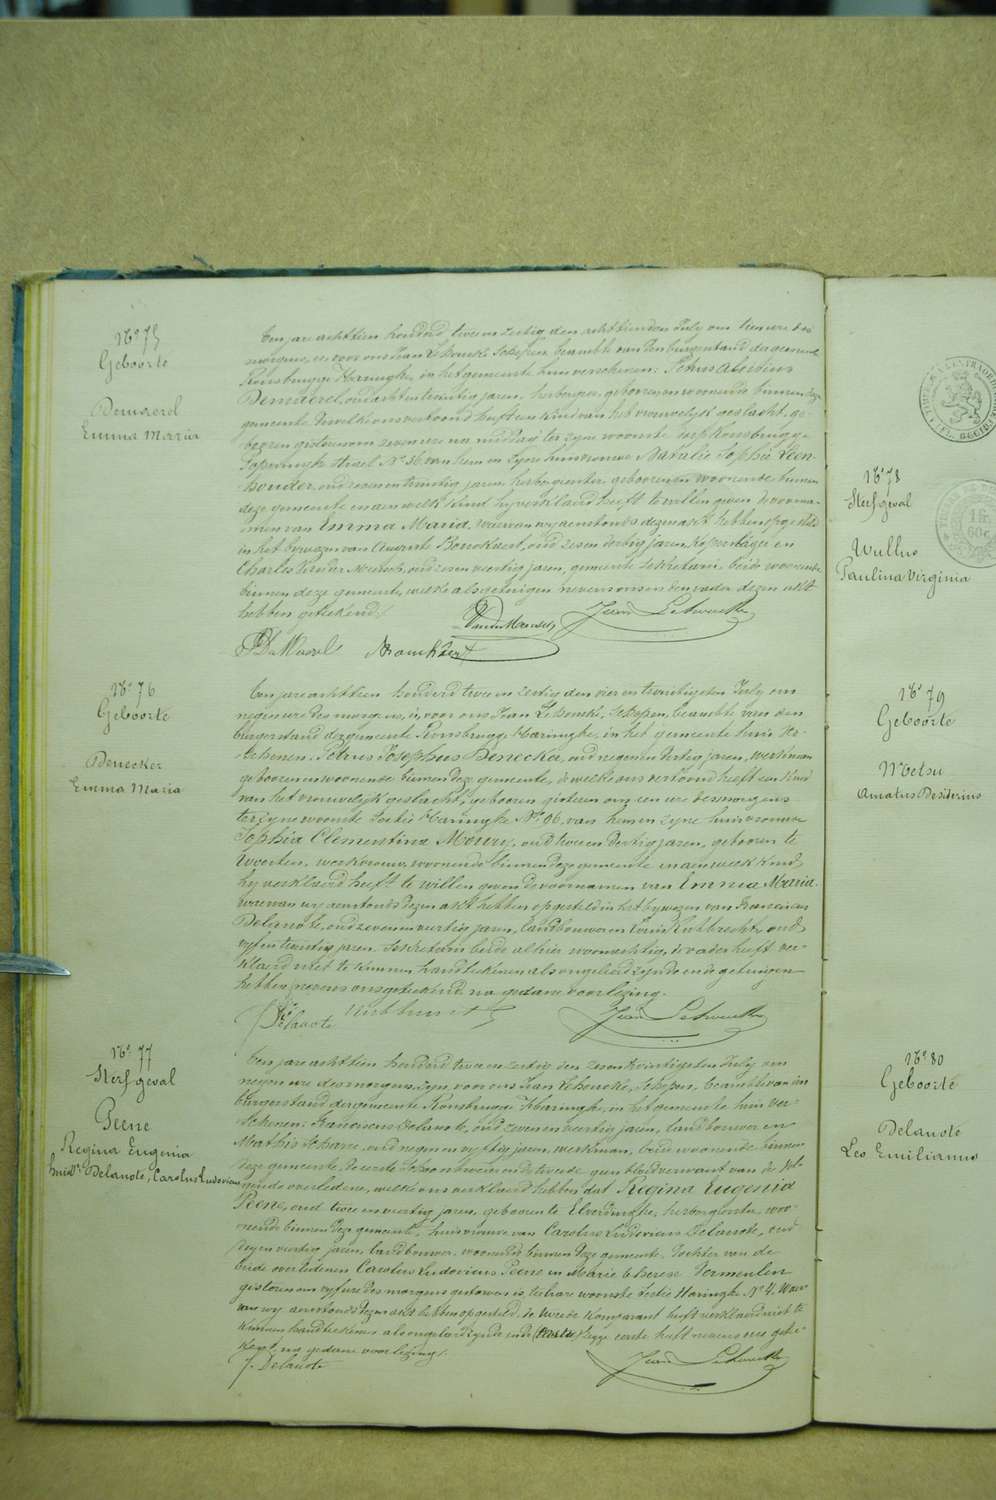 N° 75
Geboorte
Demaerel
Emma Maria
Een jare achttien honderd twee en zestig den achttienden July om tien ure des
morgens, is voor ons Jean Lehoucke Schepen, beambte van den burgerstand der gemeente
Rousbrugge Haringhe, in het gemeente huis verschenen: Petrus Aloysius
Demaerel, oud acht en twintig jaren, herbergier, geboren en woonende binnen deze
gemeente, dewelke ons vertoond heeft een kind van het vrouwelyk geslacht, ge-
boren gisteren om zeven ure na middag ter zyne woonste dorp Rousbrugge
straet N° 36 van hem en zyne huisvrouwe Natalie Sophie Leen-
oud zeven en twintig jaren, herbergierster, geboren en woonende binnen
deze gemeente en aen welk kind hy verklaerd heeft te willen geven de voorna-
men van Emma Maria. Waer van wy aenstonds dezen akt hebben opgesteld
in het bywezen van Auguste Bonckaert, oud zes en dertig jaren, koperslager en
Charles Vander Meersch, oud zes en veertig jaren, gemeente sekretaris beide woonende
binnen deze gemeente, welke als getuigen nevens ons en den vader dezen akt
hebben geteekend.
Jean Lehoucke
N° 76
Geboorte
Denecker
Emma Maria
Een jare achttien honderd twee en zestig den vier en twintigsten July om
negen ure des morgens, is voor ons Jean Lehoucke, Schepen, beambte van den
burgerstand der gemeente Rousbrugge Haringhe, in het gemeente huis ver-
schenen: Petrus Josephus Denecker, oud negen en dertig jaren, werkman
geboren en woonende binnen deze gemeente, dewelke ons vertoond heeft een kind
van het vrouwelyk geslacht, geboren gisteren om een ure des morgens
ter zyne woonste sectie Haringhe N° 96, van hem en zyne huisvrouwe
Sophia Clementina Mouvy, oud twee en dertig jaren, geboren te
Woesten, werkvrouw, woonende binnen deze gemeente en aen welk kind
hy verklaerd heeft te willen geven de voornamen van Emma Maria.
waer van wy aenstonds dezen akt hebben opgesteld in het bywezen van Franciscus
Delanote, oud zeven en veertig jaren, landbouwer en oud
vyf en twintig jaren, sekretaris beide alhier woonachtig, de vader heeft ver-
klaerd niet te kunnen handteekenen als ongeleerd zynde en de getuigen
hebben nevens ons geteekend na gedane voorlezing.
F. Delanote
Jean Lehoucke
N° 77
Sterfgeval
Peene
Regina Eugenia
huisvr. Delanote, Carolus Ludovicus
Een jare achttien honderd twee en zestig den zes en twintigsten July om
negen ure des morgens zyn, voor ons Jean Lehoucke, Schepen, beambte van den
burgerstand der gemeente Rousbrugge Haringhe, in het gemeente huis ver-
schenen: Franciscus Delanote, oud zeven en veertig jaren, landbouwer en
Mathis oud negen en vyftig jaren, werkman, beide woonende binnen
deze gemeente, de eerste schoonbroeder en de tweede geen bloedverwant van de vol-
gende overledene, welke ons verklaerd hebben dat Regina Eugenia
Peene, oud twee en veertig jaren, geboren te Elverdinghe, herbergierster, woo-
nende binnen deze gemeente, huisvrouwe van Carolus Ludovicus Delanote, oud
negen en veertig jaren, landbouwer, woonende binnen deze gemeente. Dochter van de
beide overledenen Carolus Ludovicus Peene en Marie Therese Vermeulen
gisteren om vyf ure des morgens gestorven is, te hare woonste sectie Haringhe N° 4. Waer
van wy aenstonds dezen akt hebben opgesteld, de tweede komparant heeft verklaerd niet te
kunnen handteekenen als ongeleerd zynde en de zegge eerste heeft nevens ons getee-
kend, na gedane voorlezing.
F. Delanote
Jean Lehoucke
N° 78
Sterfgeval
Wullus
Paulina Virginia
N° 79
Geboorte
Metsu
Amatus Desiderius
N° 80
Geboorte
Delanote
Leo Emilianus